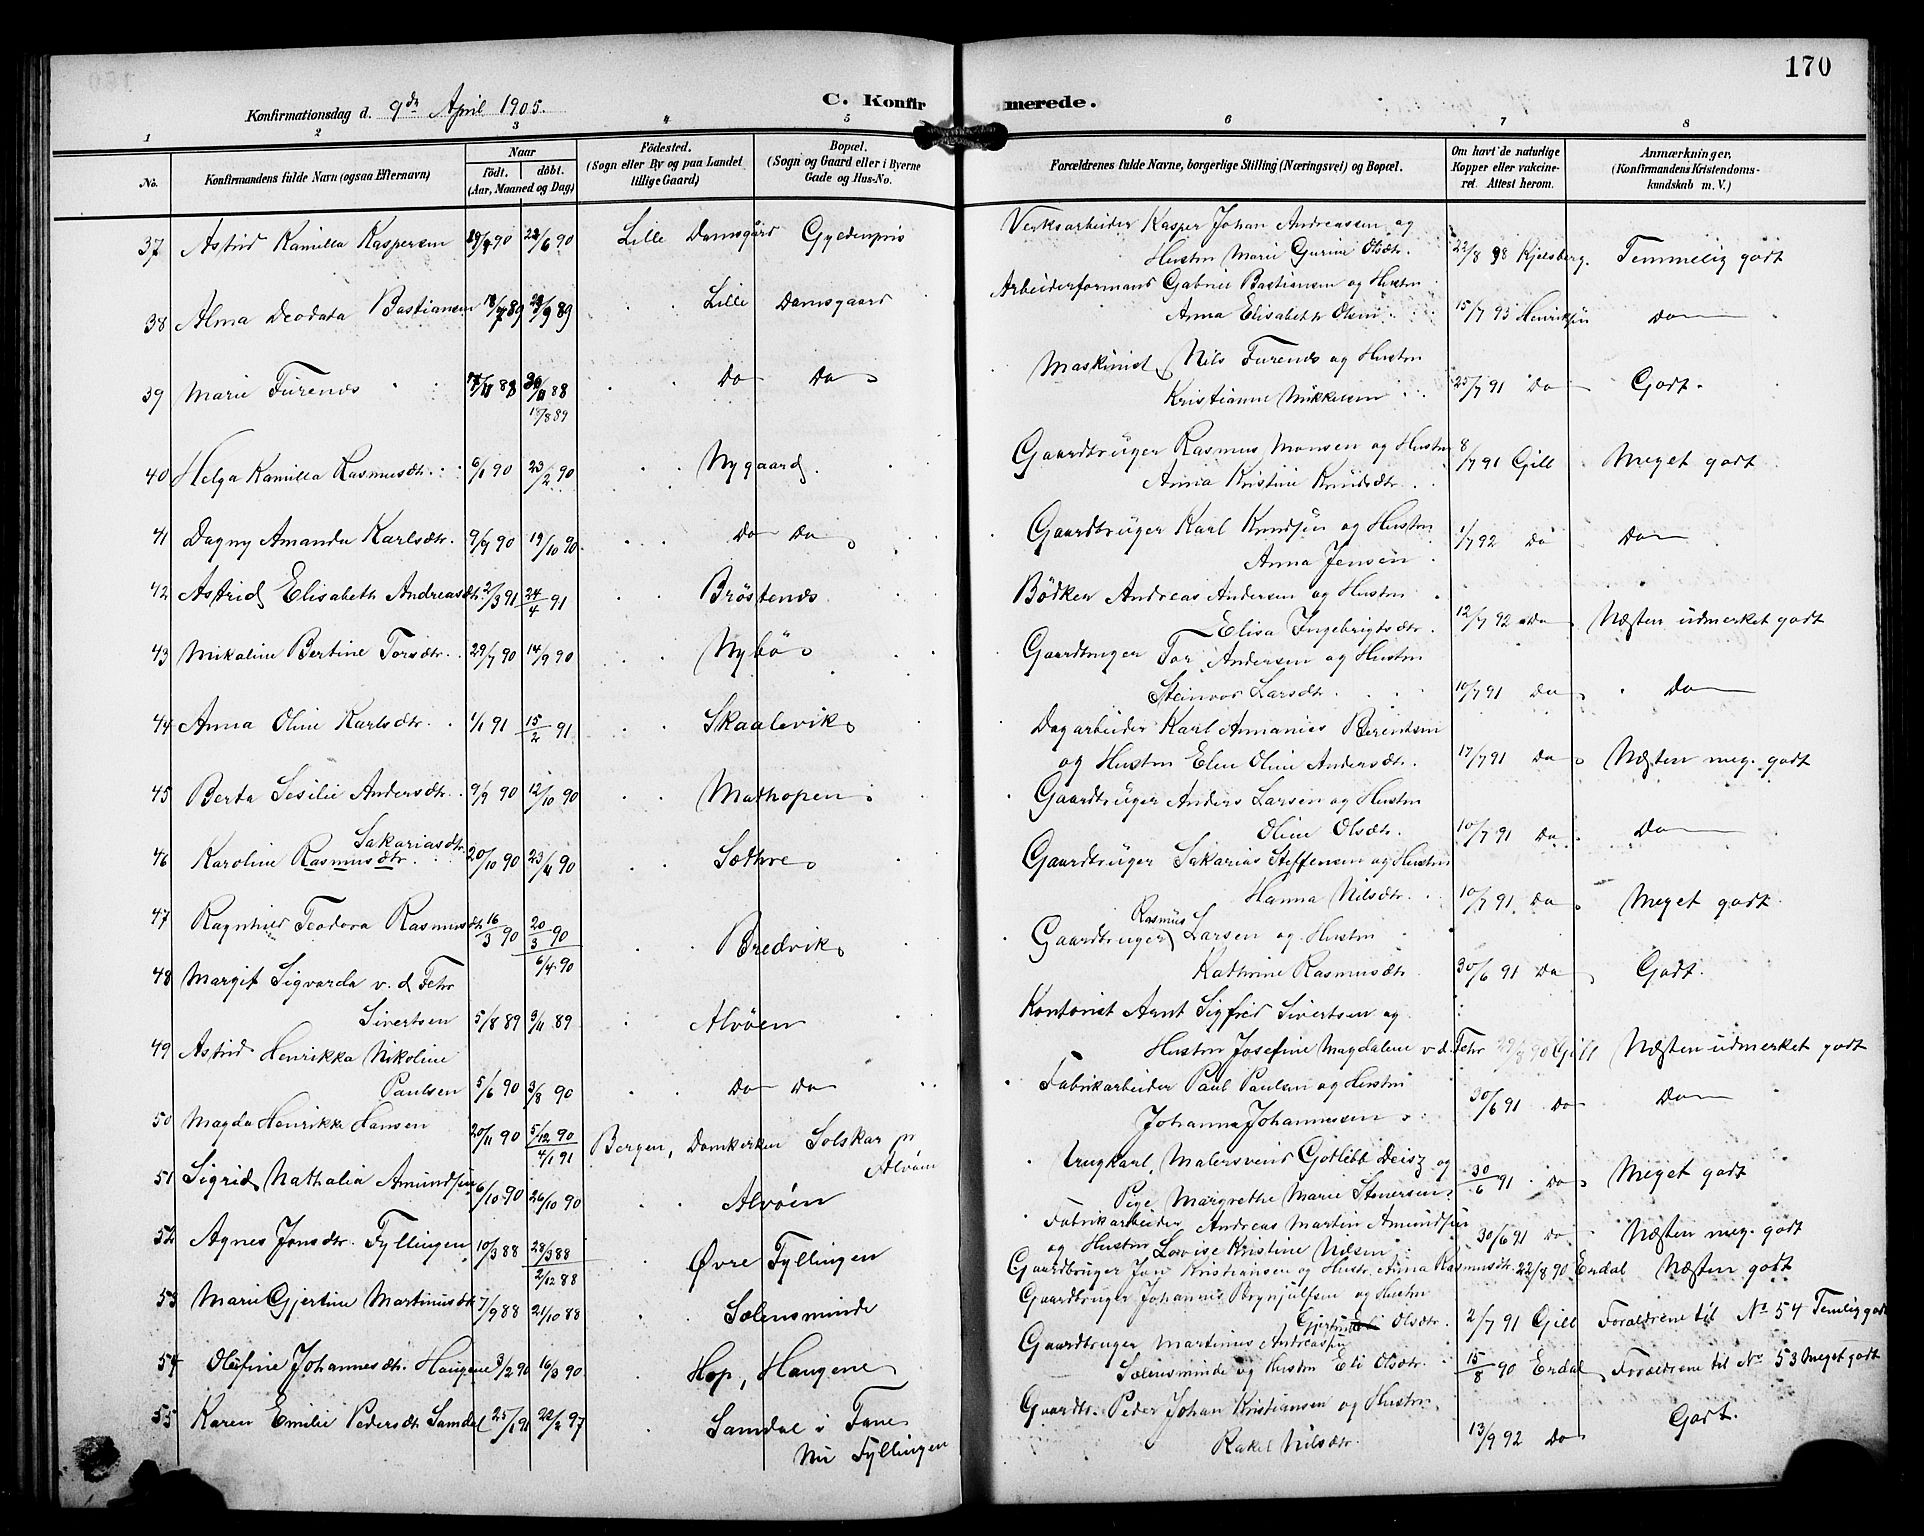 170
Konfirmationsdag d. 9de April 1905.
C. Konfirmerede.
1 2 3 4 5 6 7 8
No.
Konfirmandens fulde Navn (ogsaa Efternavn)
Naar
födt. döbt.
(Aar, Maaned og Dag)
Födested.
(Sogn eller By og paa Landet
tillige Gaard)
Bopæl.
(Sogn og Gaard eller i Byerne
Gade og Hus-No.
Forældrenes fulde Navne, borgerlige Stilling (Næringsvei) og Bopæl.
Om havt de naturlige
Kopper eller vakcine-
ret. Attest herom.
Anmærkninger.
(Konfirmandens Kristendoms-
kundskab m. V.)
37 Astrid Kamilla Kaspersen 22/6 90 Lille Damsgård Gyldenpris
Verksarbeider Kasper Johan Andreassen og
Hustru Marie Gurine Olsdtr. 22/8 98 Kjelsberg. Temmelig godt
38 Alma Deodata Bastiansen 18/7 89 28/9 89 Lille Damsgaard
Arbeiderformand Gabriel Bastiansen og Hustru
Anna Elisabeth Olsen 15/7 93 Henriksen Do
39 Marie Furenes 30/11 88 Do Do
18/8 89
Maskinist Nils Furenes og Hustru
Kristianne Mikkelsen 25/7 91 Do Godt.
40 Helga Kamilla Rasmusdtr. 6/1 90 23/2 90 Nygaard.
Gaardbruger Rasmus Monsen og Hustru
Anna Kristine Knudsdtr. 8/7 91 Gill Meget godt
41 Dagny Amanda Karlsdtr. 9/9 90 19/10 90. Do Do
Gaardbruger Karl Knudsen og Hustru
Anna Jensen 1/7 92 Do Do
42 Astrid Elisabeth Andreasdtr. 2/3 91 24/4 91 Bröstenes
Bödker Andreas Andersen og Hustru
Elisa Ingebrigtsdtr. 12/7 92 Do Næsten udmerket godt
43 Mikaline Bertine Torsdtr. 29/7 90 14/9 90 Nybö
Gaardbruger Tor Andersen og Hustru
Steinvor Larsdtr. 10/7 91 Do Do
44 Anna Oline Karlsdtr. 1/1 91 15/2 91 Skaalevik
Dagarbeider Karl Annanies Berentsen
og Hustru Elen Oline Andersdtr. 17/7 91 Do Næsten meg. godt
45 Berta Sesilie Andersdtr. 9/9 90 12/10 90 Mathopen
Gaardbruger Anders Larsen og Hustru
Oline Olsdtr. 10/7 91 Do Do
Sakariasdtr.
46 Karoline Rasmusdtr. 20/10 90 23/11 90 Sæthre
Gaardbruger Sakarias Steffensen og Hustru
Hanna Nilsdtr. 10/7 91. Do Meget godt.
47 Ragnhild Teodora Rasmusdtr. 16/3 90 20/3 90 Bredvik
6/4 90
Rasmus
Gaardbruger Larsen og Hustru
Kathrine Rasmusdtr. 30/6 91 Do Godt.
48 Margit Sigvarda v. d Fehr
Sivertsen 5/8 89 3/11 89 Alvöen
Kontorist Arnt Sigfred Sivertsen og
Hustru Josefine Magdalene v. d. Fehr 90 Gill Næsten udmerket godt
49 Astrid Henrikka Nikoline
Paulsen 5/6 90 3/8 90 Do Do
Fabrikarbeider Paul Paulsen og Hustru
Johanna Johannesen 30/6 91 Do Do
50 Magda Henrikka Hansen 20/11 90 5/12 90 Bergen, Domkirken Solskar pr
4/1 91 Alvöen
Ungkarl, Malersvend Gotlebb Deisz og
Pige Margrethe Marie Stenersen 30/6 91 Do Meget godt
51 Sigrid Nathalia Amundsen 6/10 90 26/10 90 Alvöen
Fabrikarbeider Andreas Martin Amundsen
og Hustru Lovise Kristine Nilsen 30/6 91 Do Næsten meg. godt
52 Agnes Jonsdtr. Fyllingen 10/3 88 28/3 88 Øvre Fyllingen
2/12 88
Gaardbruger Jon Kristiansen og Hustr. Anna Rasmusdtr. 22/8 90 Erdal Næsten godt
53 Marie Gjertine Martinusdtr. 7/9 88 21/10 88 Sælensminde
Gaardbruger Johannes Brynjulfsen og Hustru
Gjertrud Eli Olsdtr. 2/7 91 Gill Foraldrene til No 54 Temlig godt
54 Olefine Johannesdtr. Haugene 3/2 90 16/3 90 Hop, Haugene
Gaardbruger Martinus Andreassen
Sælensminde og Hustru Eli Olsdtr. 15/8 90 Erdal Foraldrene til No 53 Meget godt
55 Karen Emilie Pedersdtr. Samdal 25/1 91 22/2 97 Samdal i Fane
Nu Fyllingen
Gaardb. Peder Johan Kristiansen og Hustru
Rakel Nilsdtr. 13/9 92 Do Godt.